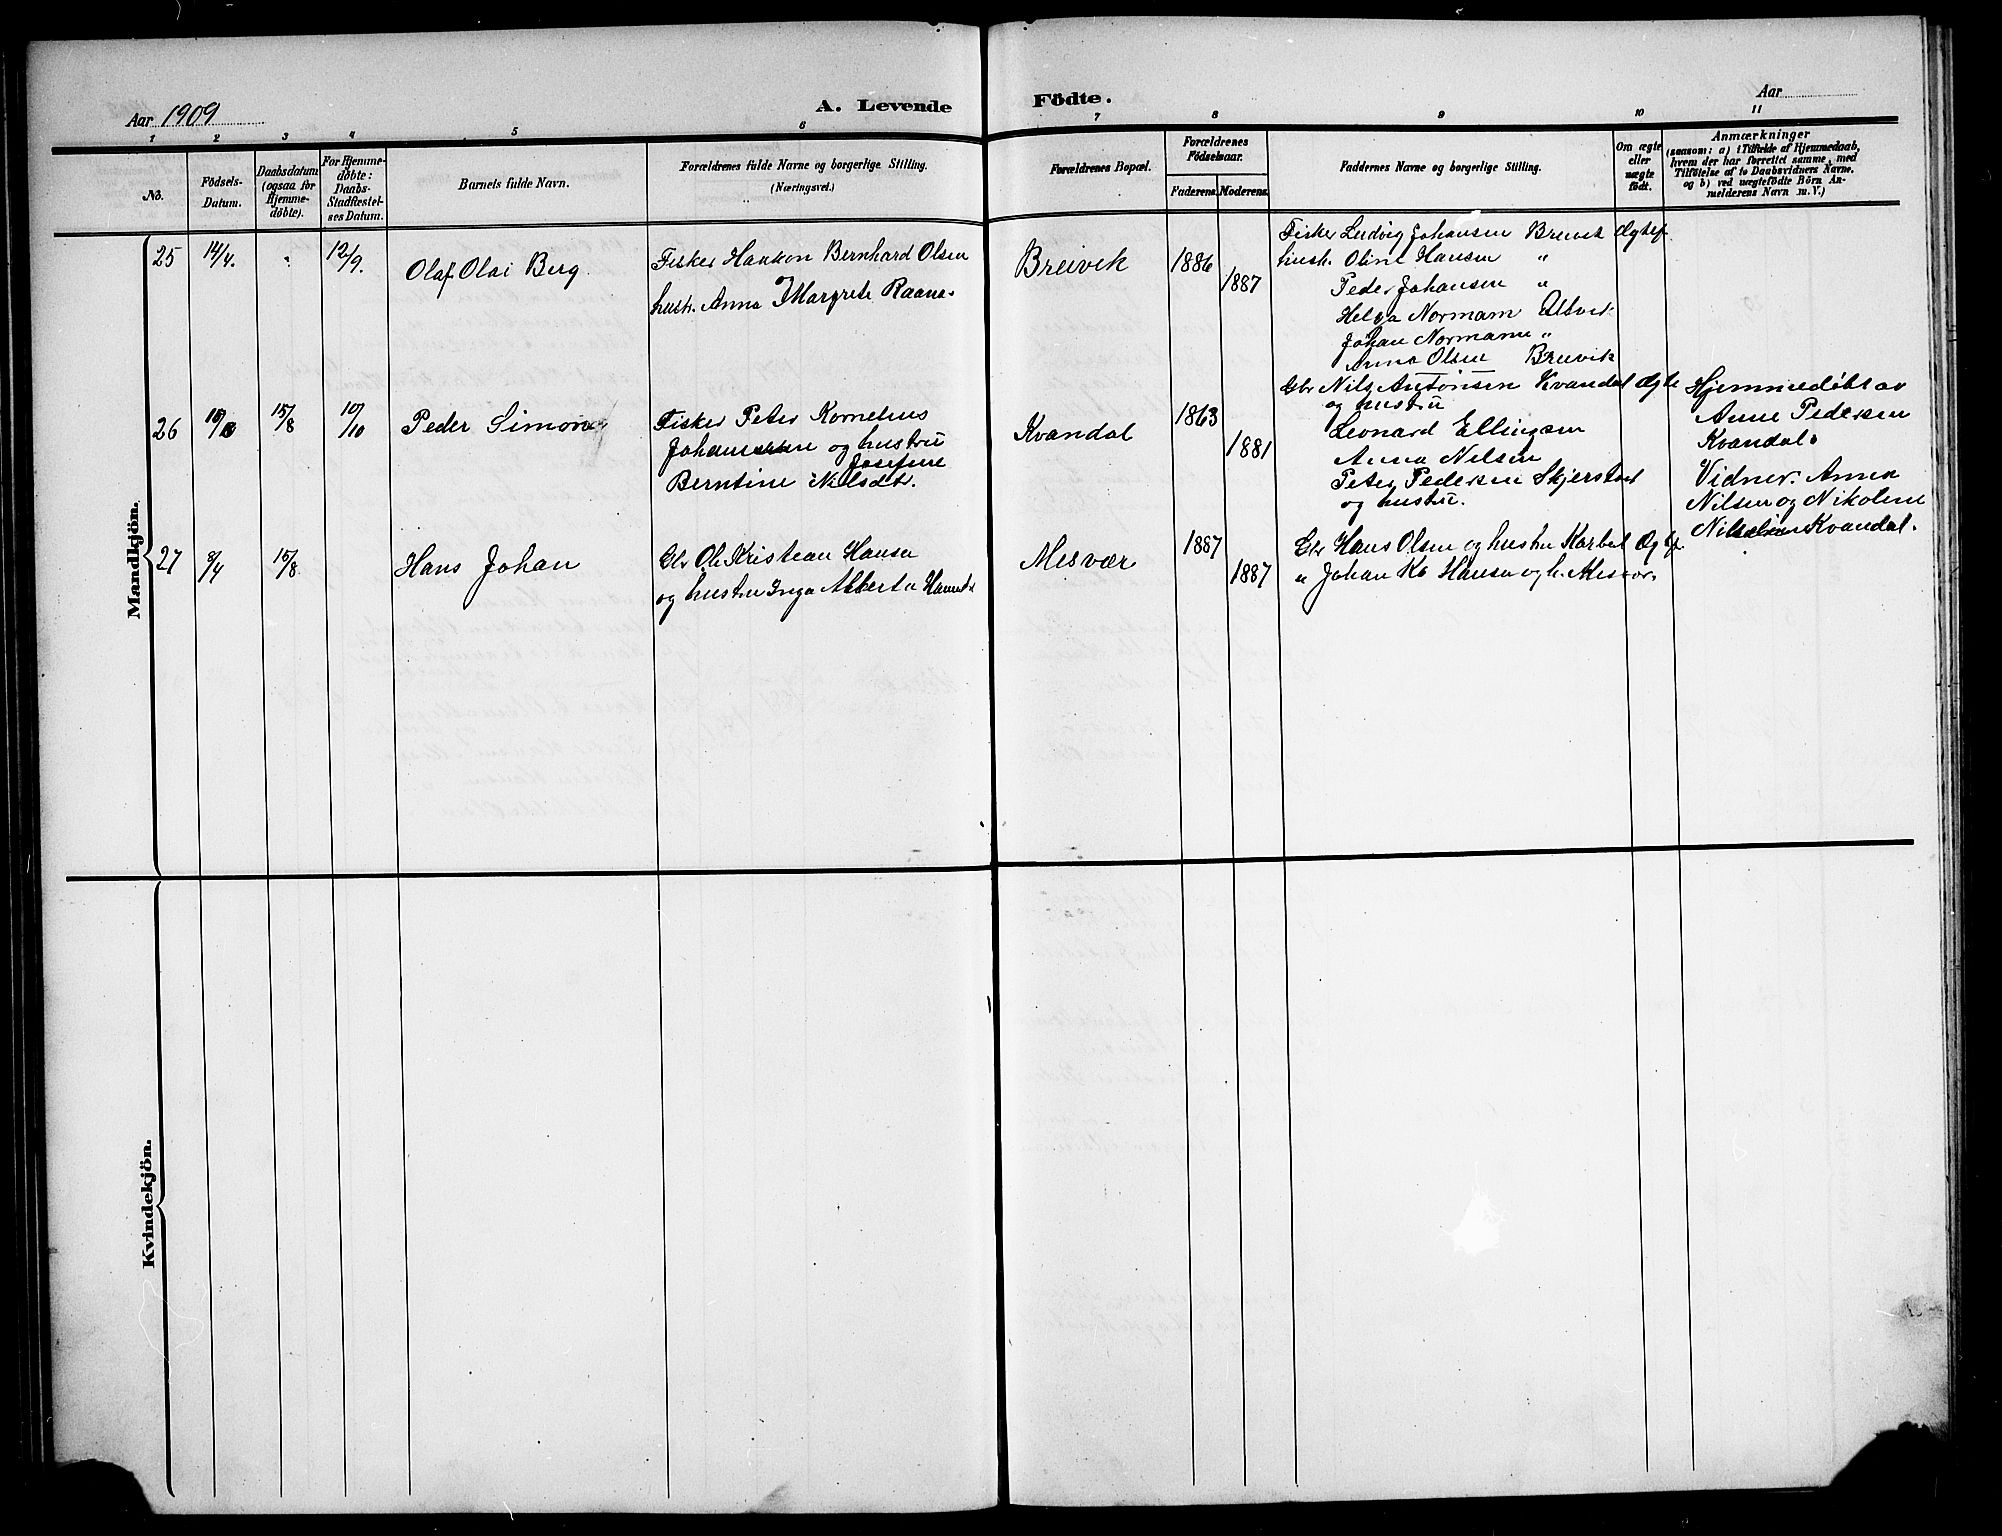 Aar 1909
A. Levende Födte.
Aar
1 2 3 4 5 6 7 8 9 10 11
No.
Födsels-
Datum.
Daabsdatum
(ogsaa for
Hjemme-
døbte).
For Hjemme-
døbte:
Daabs-
Stadfæstel-
ses Datum.
Barnets fulde Navn.
Forældrenes fulde Navne og borgerlige Stilling.
(Næringsvei.)
Forældrenes Bopæl.
Forældrenes
Födselsaar.
Faderens. Moderens.
Faddernes Navne og borgerlige Stilling.
Om ægte
eller
uægte
født.
Anmærkninger
(saasom: a) i Tilfælde af Hjemmedaab,
hvem der har forrettet samme, med
Tilføielse af to Daabsvidners Navne.
og b) ved uægtefödte Börn An-
melderens Navn m. V.)
Mandkjön.
25 14/4. " 12/9. Olaf Olai Berg
Fisker Haakon Bernhard Olsen
hustr. Anna Margrete Raana.
Breivik 1886 1887
Fisker Ludvig Johansen Breivik
hustr. Oline Hansen "
Peder Johansen "
Helga Normann
Johan Normann "
Anna Olsen Breivik
Ægtef.
26 15/8 10/10 Peder Simon
Fisker Peter Kornelius
og hustru
Josefine
Berntine Nilsdt.
Kvandal 1863 1881
Gbr Nils Antonsen Kvandal
og hustru
Leonard Ellingsen
Anna Nilsen
Peter Pedersen Skjerstad
og hustru.
Ægte
Hjemmedøbt av
Anne Pedersen
Kvandal.
Vidner. Anna
Nilsen og Nikoline
Kvandal.
27 8/4 15/8 Hans Johan
Gbr Ole Kristian Hansen
og hustru Inga
Mesvær 1887 1887
Gbr Hans Olsen og hustru Karbøl
" Johan Kr Hansen og h. Mesvær.
Ægtef.
Kvindekjön.